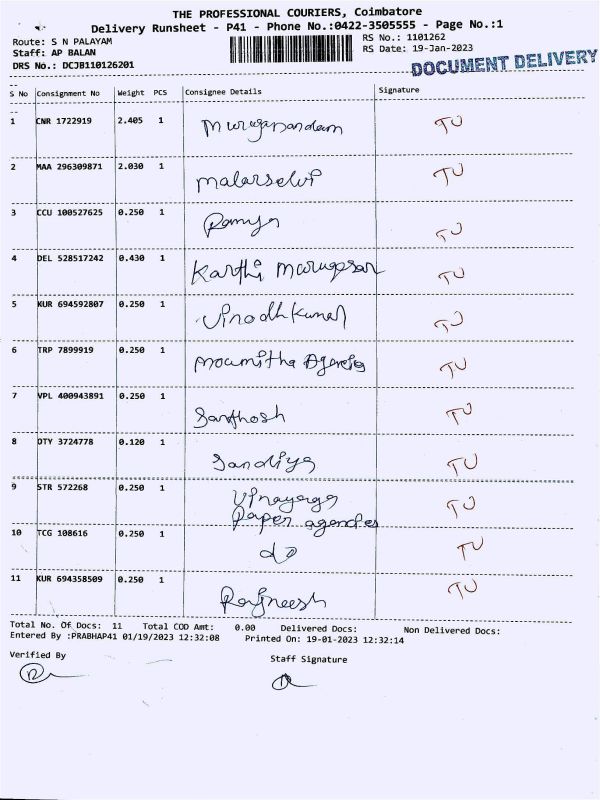 THE PROFESSIONAL COURIERS, Coimbatore
Delivery Runsheet - P41 - Phone No.:0422-3505555 - Page No.:1
Route: S N PALAYAM
RS No.: 1101262
Staff: AP BALAN
RS Date: 19-Jan-2023
DRS No.: DCJB110126201
DOCUMENT DELIVERY
S No Consignment No Weight PCS Consignee Details Signature
1 CNR 1722919 2.405 1 Muruganandam TU
2 MAA 296309871 2.030 1 Malarselvi TU
3 CCU 100527625 0.250 1 Ramya TU
4 DEL 528517242 0.430 1 Karthi Murugesan TU
5 KUR 694592807 0.250 1 Vinodhkumar TU
6 TRP 7899919 0.250 1 Moumitha Agencies TU
7 VPL 400943891 0.250 1 Santhosh TU
8 OTY 3724778 0.120 1 Sandiya TU
9 STR 572268 0.250 1 Vinayaga TU
Paper agencies
10 TCG 108616 0.250 1 do TU
11 KUR 694358509 0.250 1 Rajneesh TU
Total No. Of Docs: 11 Total COD Amt: 0.00 Delivered Docs: Non Delivered Docs:
Entered By :PRABHAP41 01/19/2023 12:32:08 Printed On: 19-01-2023 12:32:14
Verified By
Staff Signature